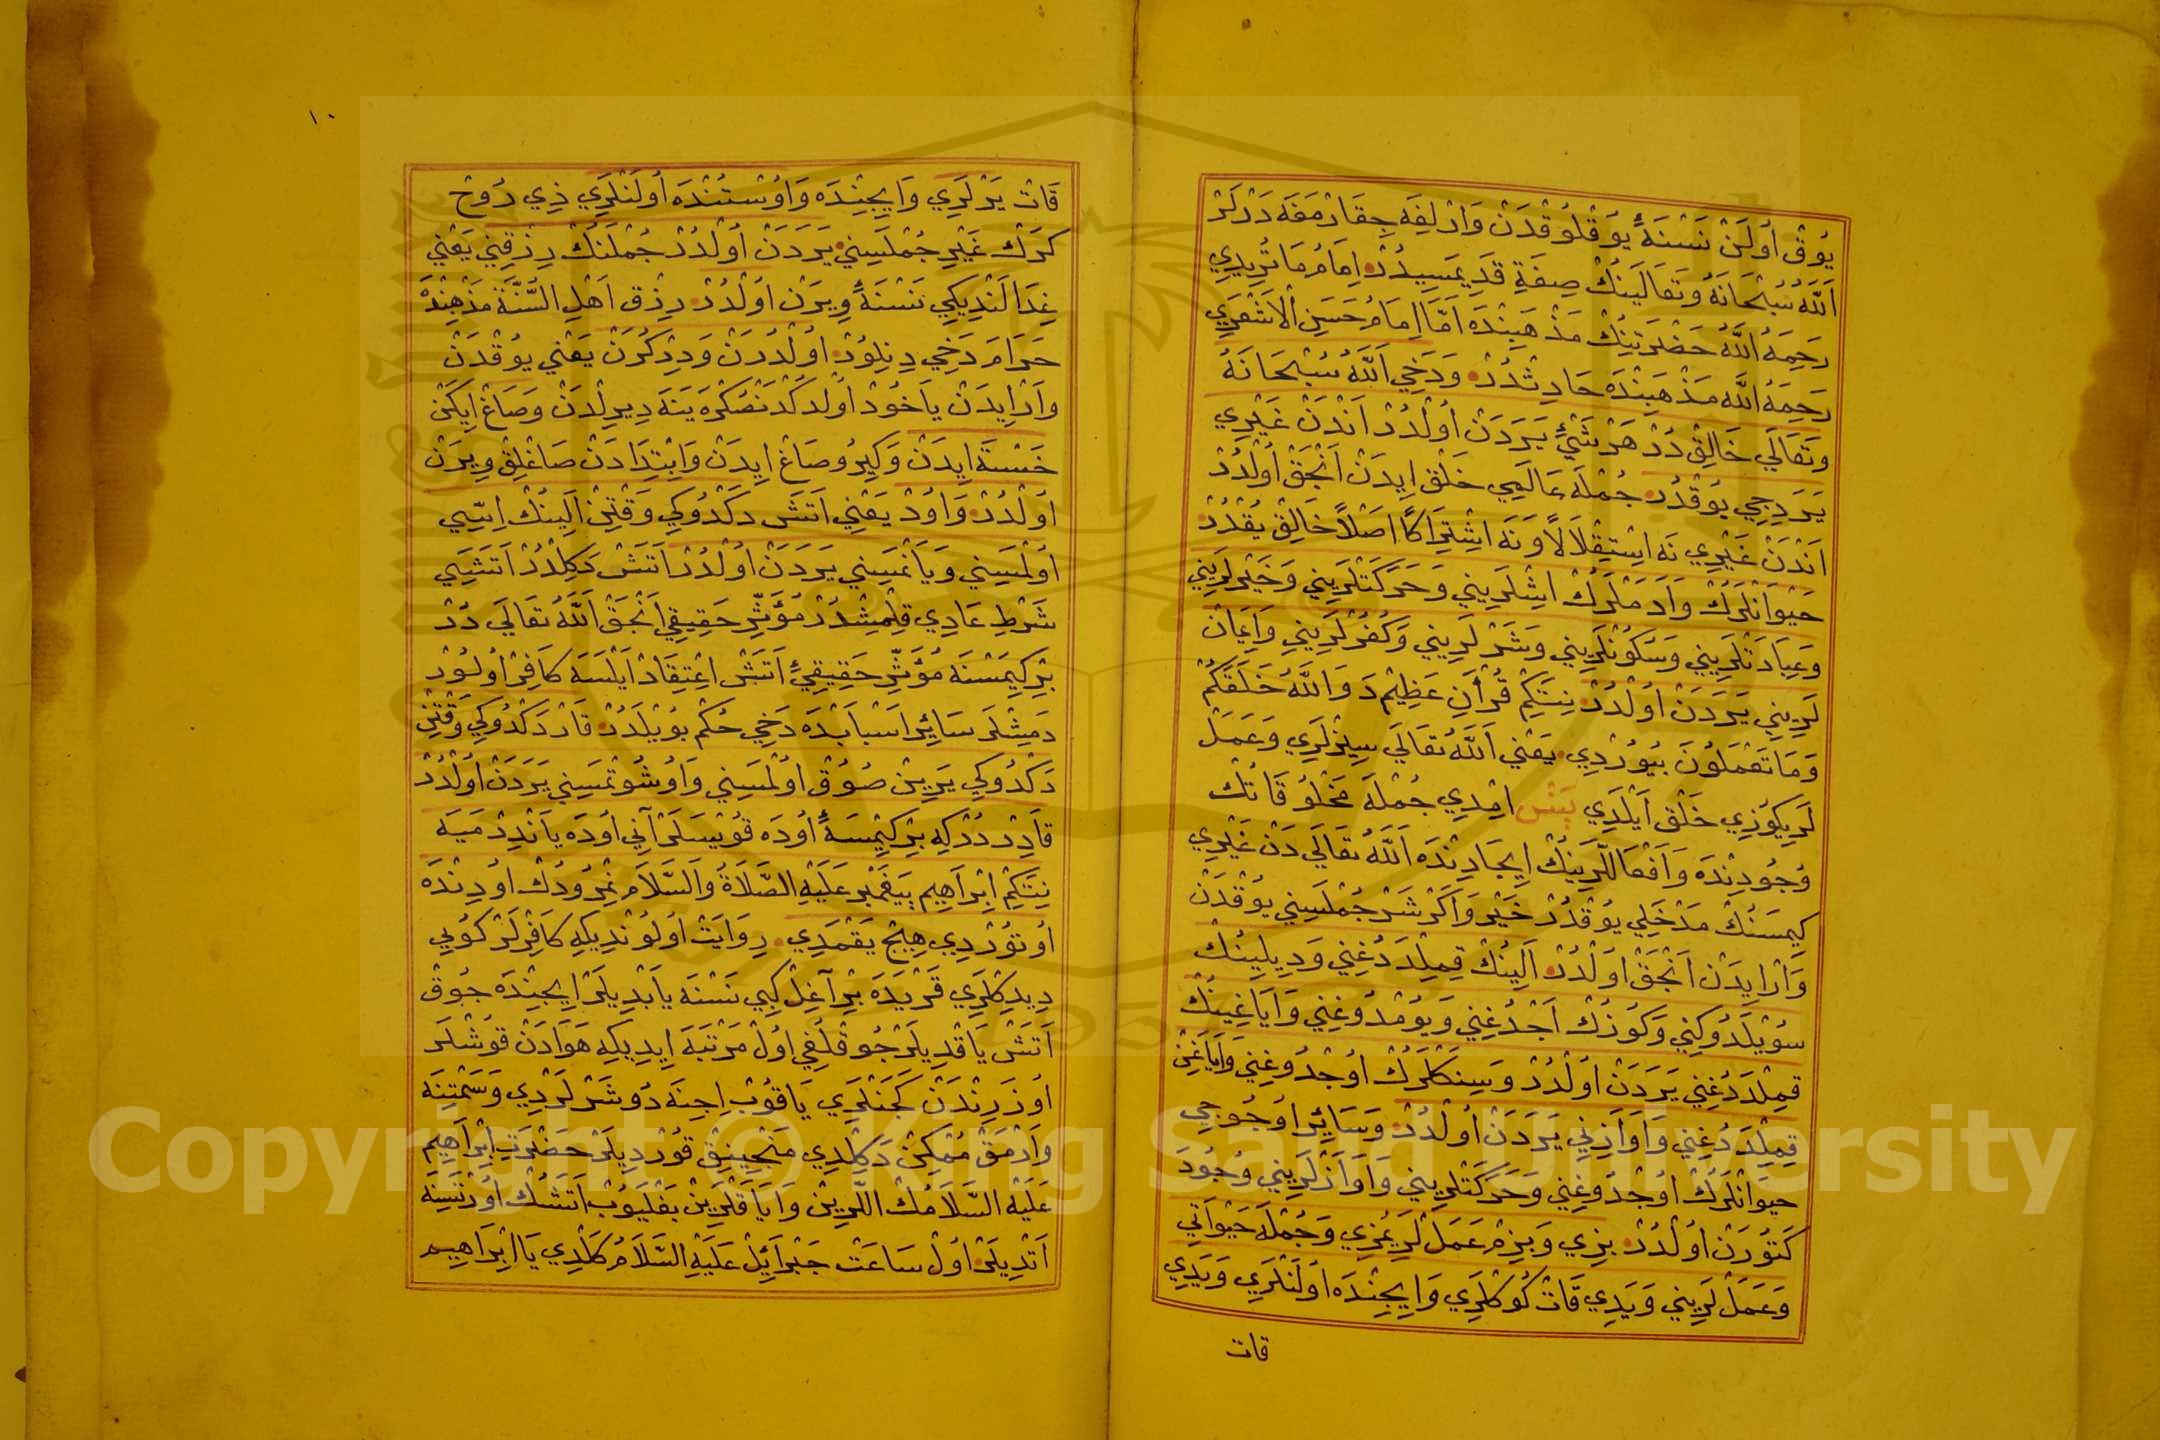 يُوقْ اُولَنْ نَسْنَهٔ يُوقْلُوقْدَنْ وَارْلِغَه چِقَارْمَغَه دَرْلَرْ
اَللّٰهُ سُبْحَانَهُ وَتَعَالَينُكْ صِفَةِ قَدِيمَسِيدُرْ اِمَامُ مَاتُرِيدِي
رَحِمَهُ اللّٰهُ حَضْرَتِنِكْ مَذْهَبِنْدَه اَمَّا اِمَامُ حَسَنِ الْاَشْعَرِي
رَحِمَهُ اللّٰه مَذْهَبِنْدَه حَادِثْدُرْ وَدَخِي اَللّٰهُ سُبْحَانَهُ
وَتَعَالَي خَالِقْ دُرْ هَرْ شَيْئِ يَرَدَنْ اُولْدُرْ اَنْدَنْ غَيْرِي
يَرَدِجِي يُوقْدُر جُمْلَه عَالَمِي خَلْق اِيدَنْ اَنْجَقْ اُولْدُرْ
اَنْدَنْ غَيْرِي نَه اِسْتِقْلَالاً وَنَه اِشْتِرَاكاً اَصْلاً خَالِقْ يُقْدُرْ
حَيْوَانْلَرُكْ وَاَدَمْلَرُكْ اِشْلَرِيني وَحَرَكَتْلَرِيني وَخَيْرلَرِيني
وَعِبَادَتْلَرِيني وَسُكُونْلَرِيني وَشَرْلَرِيني وَكُفُرْلَرِيني وَاِيمَانْ
لَرِيني يَرَدَنْ اُولْدُرْ نِتَكِمْ قُرْآنِ عَظِيمْ دَ وَاللّٰهُ خَلَقَكُمْ
وَمَا تَعْمَلُونَ بُيُورْدِي يَعْنِي اَللّٰهُ تَعَالَي سِيزْلَرِي وَعَمَلْ
لَرِيكُوزِي خَلْق اَيْلَدِي پَسْ اِمْدِي جُمْلَه مَخْلُوقَاتُكْ
وُجُودِنْدَه وَاَفْعَاللَّرِينُكْ اِيجَادِنْدَه اَللّٰهُ تَعَالَي دَنْ غَيْرِي
كِيمَسَنُكْ مَدْخَلِي يُوقْدُرْ خَيْر وَاَكَرْ شَرْ جُمْلَسِنِي يُوقْدَنْ
وَارْ اِيدَنْ اَنْجَقْ اُولْدُرْ اَلِينُكْ قِمِلْدَدُغِنِي وَدِيلِينُكْ
سُوْيلَدُوكِنِي وَكُوزُكْ اَجْدُغِنِي وَيُومْدُوغِنِي وَاَيَاغِينُكْ
قِمِلْدَدُغِنِي يَرَدَنْ اُولْدُرْ وَسِنِكْلَرُكْ اُوجْدُوغِنِي وَاَيَاغِنْ
قِمِلْدَدُغِنِي وَاَوَازِنِي يَرَدَنْ اُولْدُرْ وَسَائِرْ اُوجُوجِي
حَيْوَانْلَرُكْ اُوجْدُوغِنِي وَحَرَكَتْلَرِينِي وَاَوَازْلَرِينِي وُجُودَ
كَتُورَنْ اُولْدُرْ بِزِي وَبِزِمْ عَمَلْ لَرِيمُزِي وَجُمْلَه حَيْوَانِي
وَعَمَلْ لَرِينِي وَيَدِي قَاتْ كُوكْلَرِي وَاِيچِنْدَه اُولَنْلَرِي وَيَدِي
قات
١٠
قَاتْ يَرْلَرِي وَاِيچِنْدَه وَاُوسْتُنْدَه اُولَنْلَرِي ذِي رُوحْ
كَرَكْ غَيْرِ جُمْلَسِنِي يَرَدَنْ اُولْدُرْ جُمْلَنُكْ رِزْقِنِي يَعْنِي
غِدَالَنْدِيكِي نَسْنَهٔ وِيرَنْ اُولْدُرْ رِزْق اَهْلِ السُّنَّة مَذْهِبِنْدَهْ
حَرَامَ دَخِي دِنِلُورْ اُولْدُرَنْ وَدِرْكُرَنْ يَعْنِي يُوقْدَنْ
وَارْ اِيدَنْ يَاخُودْ اُولْدُكْدَنْصُكْرَه يَنَه دِيرِلْدَنْ وَصَاغ اِيكَنْ
خَسْتَه اِيدَنْ وَكِيرُو صَاغ اِيدَنْ وَاِبْتِدَادَنْ صَاغْلِقْ وِيرَنْ
اُولْدُرْ وَاُودْ يَعْنِي اَتَشْ دَكْدُوكِي وَقْتِنْ اَلِينُكْ اِسِّيي
اُولْمَسِنِي وَيَانْمَسِنِي يَرَدَنْ اُولْدُرْ اَتَشْ دَكِلْدُرْ اَتَشِيي
شَرْطِ عَادِي قِلْمِشْدُرْ مُؤَثِّرِ حَقِيقِي اَنْجَقْ اَللّٰهُ تَعَالَي دُرْ
بِرْ كِيمَسْنَه مُؤَثِّرِ حَقِيقِي اَتَشْ اِعْتِقَادْ اَيْلَسَه كَافِرْ اُولُورْ
دَمِشْلَر سَائِر اَسْبَابْدَه دَخِي حُكْم بُويْلَدُرْ قَارْ دَكْدُوكِي وَقْتِنْ
دَكْدُوكِي يَرِينْ صُوُقْ اُولْمَسِنِي وَاُوشُوتْمَسِنِي يَرَدَنْ اُولْدُرْ
قَادِرْدُرْكِه بِرْ كِيمْسَهٔ اُودَه قُويْسَلَرْ آنِي اُودَه يَانْدِرْمَيَه
نِتَكِمْ اِبْرَاهِيم پَيغَمْبَر عَلَيْهِ الصَّلَاةُ وَالسَّلَام نِمْرُودُكْ اُودِنْدَه
اُوتُورْدِي هِيچْ يَقْمَدِي رِوَايَتْ اُولُونْدِيكِه كَافِرْلَرْ كُوبِي
دِيدِكْلَرِي قَرْيَدَه بِرْ آغِلْ كِيبِي نَسْنَه يَابْدِيلَرْ اِيچِنْدَه جُوقْ
اَتَشْ يَاقْدِيلَرْ جُوقْلُغِي اُولْ مَرْتَبَه اِيدِيكِه هَوَادَنْ قُوشْلَر
اُوزَرِنْدَنْ كَچَنْلَرِي يَاقُوبْ اِچِنَه دُوشَرْلَرْدِي وَسَمْتِنَه
وَارْمَقْ مُمْكِنْ دَكِلْدِي مَنْجَنِيقْ قُورْدِيلَرْ حَضْرَتِ اِبْرَاهِيم
عَلَيْهِ السَّلَامُكْ اَللَّرِينْ وَاَيَاقْلَرِينْ بَغْلَيُوبْ اَتَشُكْ اُورْتَسِنَه
اَتْدِيلَرْ اُولْ سَاعَتْ جَبْرَائِلْ عَلَيْهِ السَّلَامْ كَلْدِي يَا اِبْرَاهِيم
Copyright © King Saud University
1957